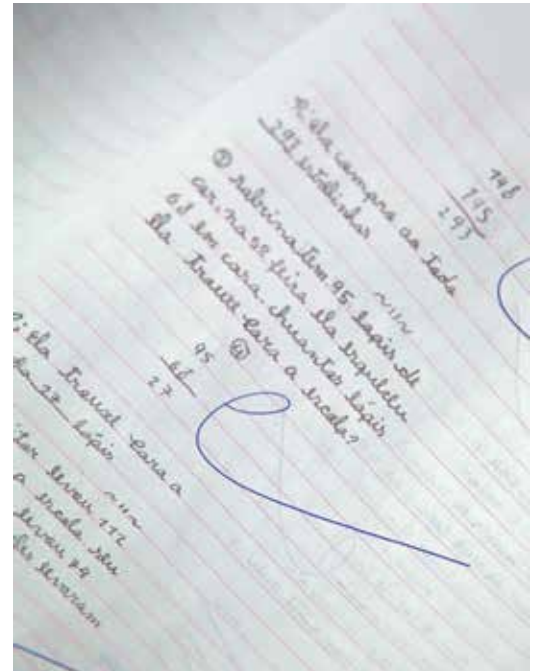 148
145
293
R: ela compra ao todo
293 estrelinhas
~11~
③ Sabrina tem 95 lapis de
cor, na 2ª feira ela esqueceu
68 em casa. Quantos lápis
ela trouxe para a escola?
④
95
68
27
R: ela trouxe para a
27 lápis
~11~
levou 112
a escola seu
levou 89
les levaram